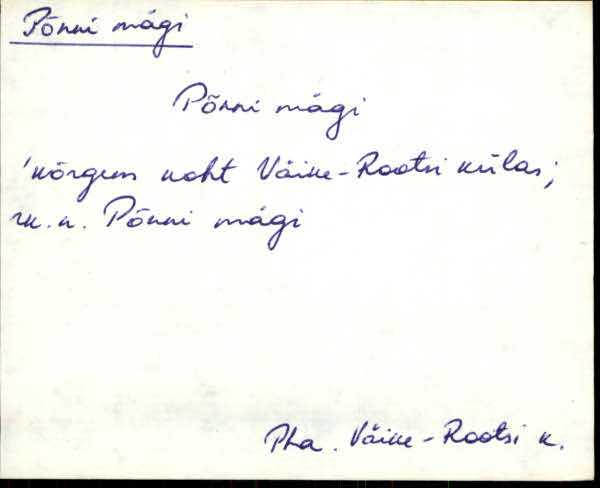 Põnni mägi
Põnni mägi
'kõrgem koht Väike-Rootsi külas;
rk. n. Põnni mägi
Pha. Väike-Rootsi k.